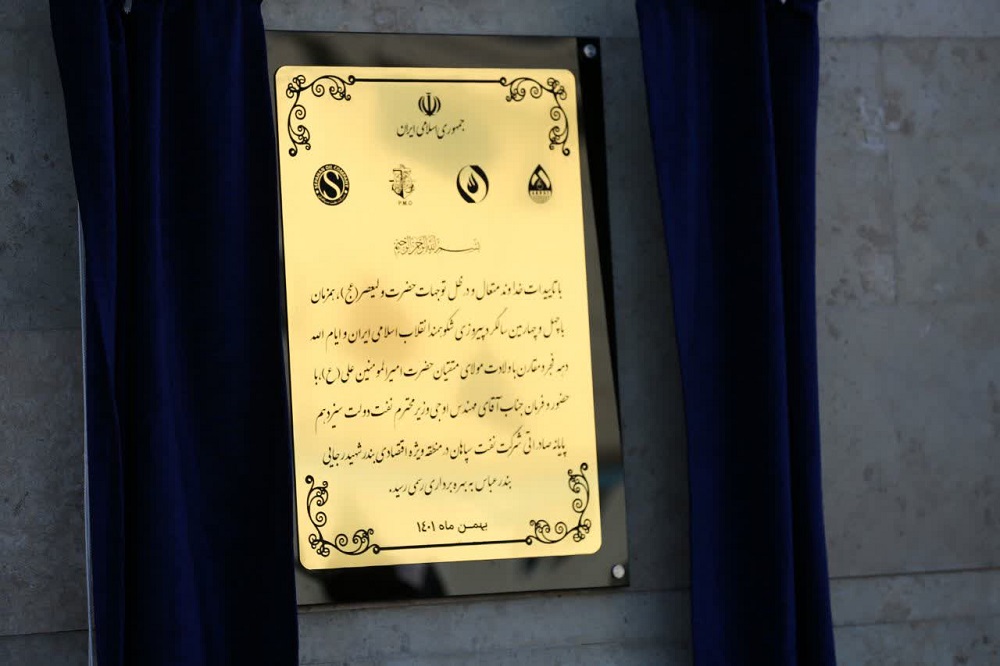 جمهوری اسلامی ایران
P.M.O
بسم الله الرحمن الرحیم
با تاییدات خداوند متعال و در ظل توجهات حضرت ولیعصر (عج)، همزمان
با چهل و چهارمین سالگرد پیروزی شکوهمند انقلاب اسلامی ایران و ایام الله
دهه فجر و مقارن با ولادت مولای متقیان حضرت امیرالمومنین علی (ع)، با
حضور و فرمان جناب آقای مهندس اوجی وزیر محترم نفت دولت سیزدهم
پایانه صادراتی شرکت نفت سپاهان در منطقه ویژه اقتصادی بندر شهید رجایی
بندرعباس به بهره برداری رسمی رسید.
بهمن ماه ۱۴۰۱